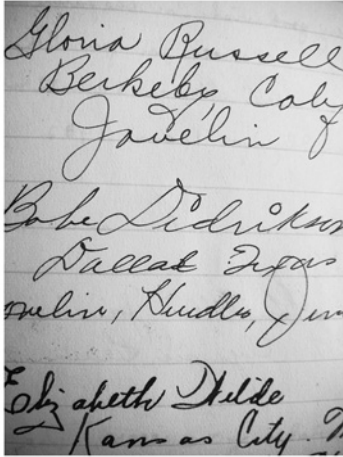 Gloria Russell
Berkeley, Calif
Javelin
Babe Didrikson
Dallas Texas
Javelin, Hurdles, Jum
Elizabeth Wilde
Kansas City. M